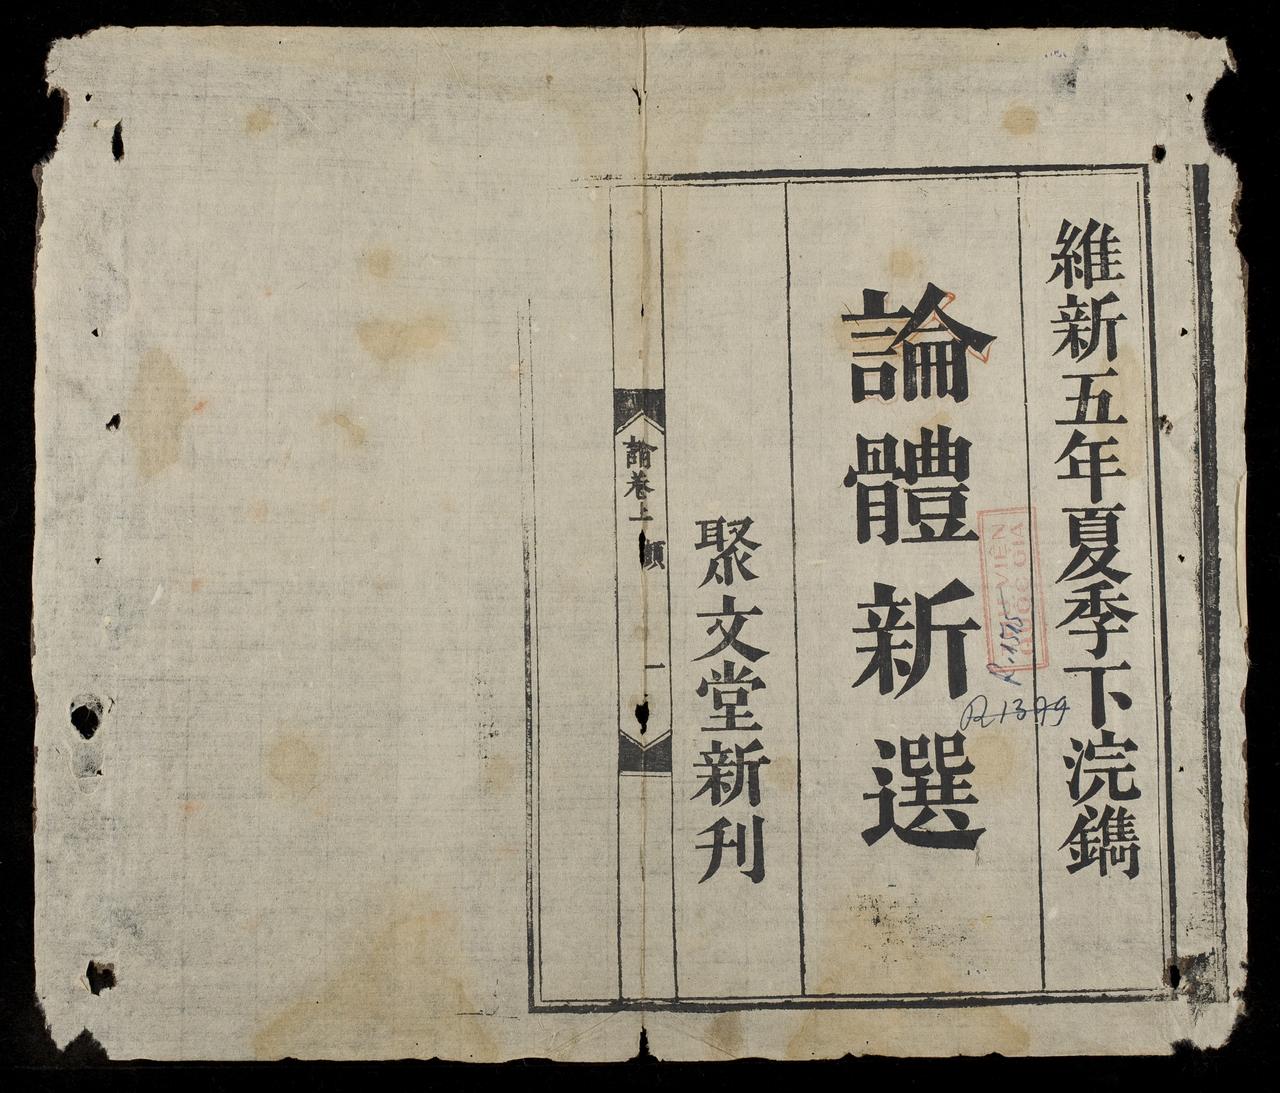 維新五年夏季下浣鐫
論體新選
聚文堂新刊
論卷上
一
THƯ VIỆN
QUỐC GIA
R.1575
R1399